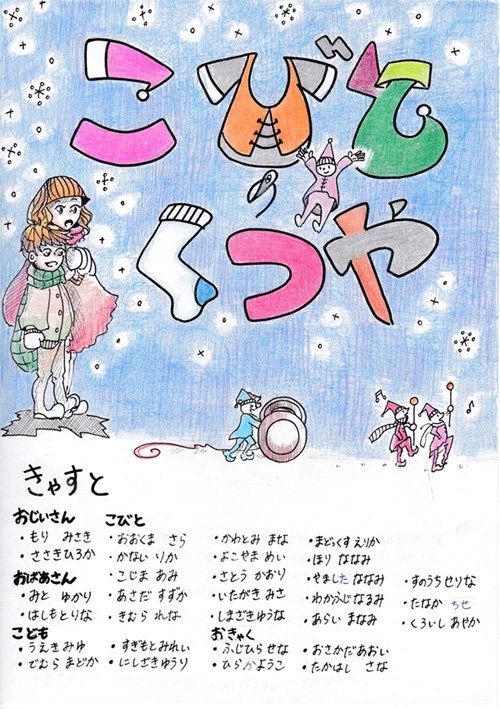 こびと
の
くつや
きゃすと
おじいさん
・もり みさき
・ささき ひろか
おばあさん
・みと ゆかり
・はしもと りな
こども
・うえき みゆ
・でむら まどか
・すぎもと みれい
・にしざき ゆうり
こびと
・おおくま さら
・かない りか
・こじま あみ
・あさだ すずか
・きむら れな
・かわとみ まな
・よこやま めい
・さとう かおり
・いたがき みさ
・しまざき ゆうな
・まどっくす えりか
・ほり ななみ
・やました ななみ
・わかふじ なるみ
・あらい まなみ
・すのうち せりな
・たなか ちせ
・くろいし あやか
おきゃく
・ふじひら せな
・ひらかようこ
・おさかだ あおい
・たかはし さな